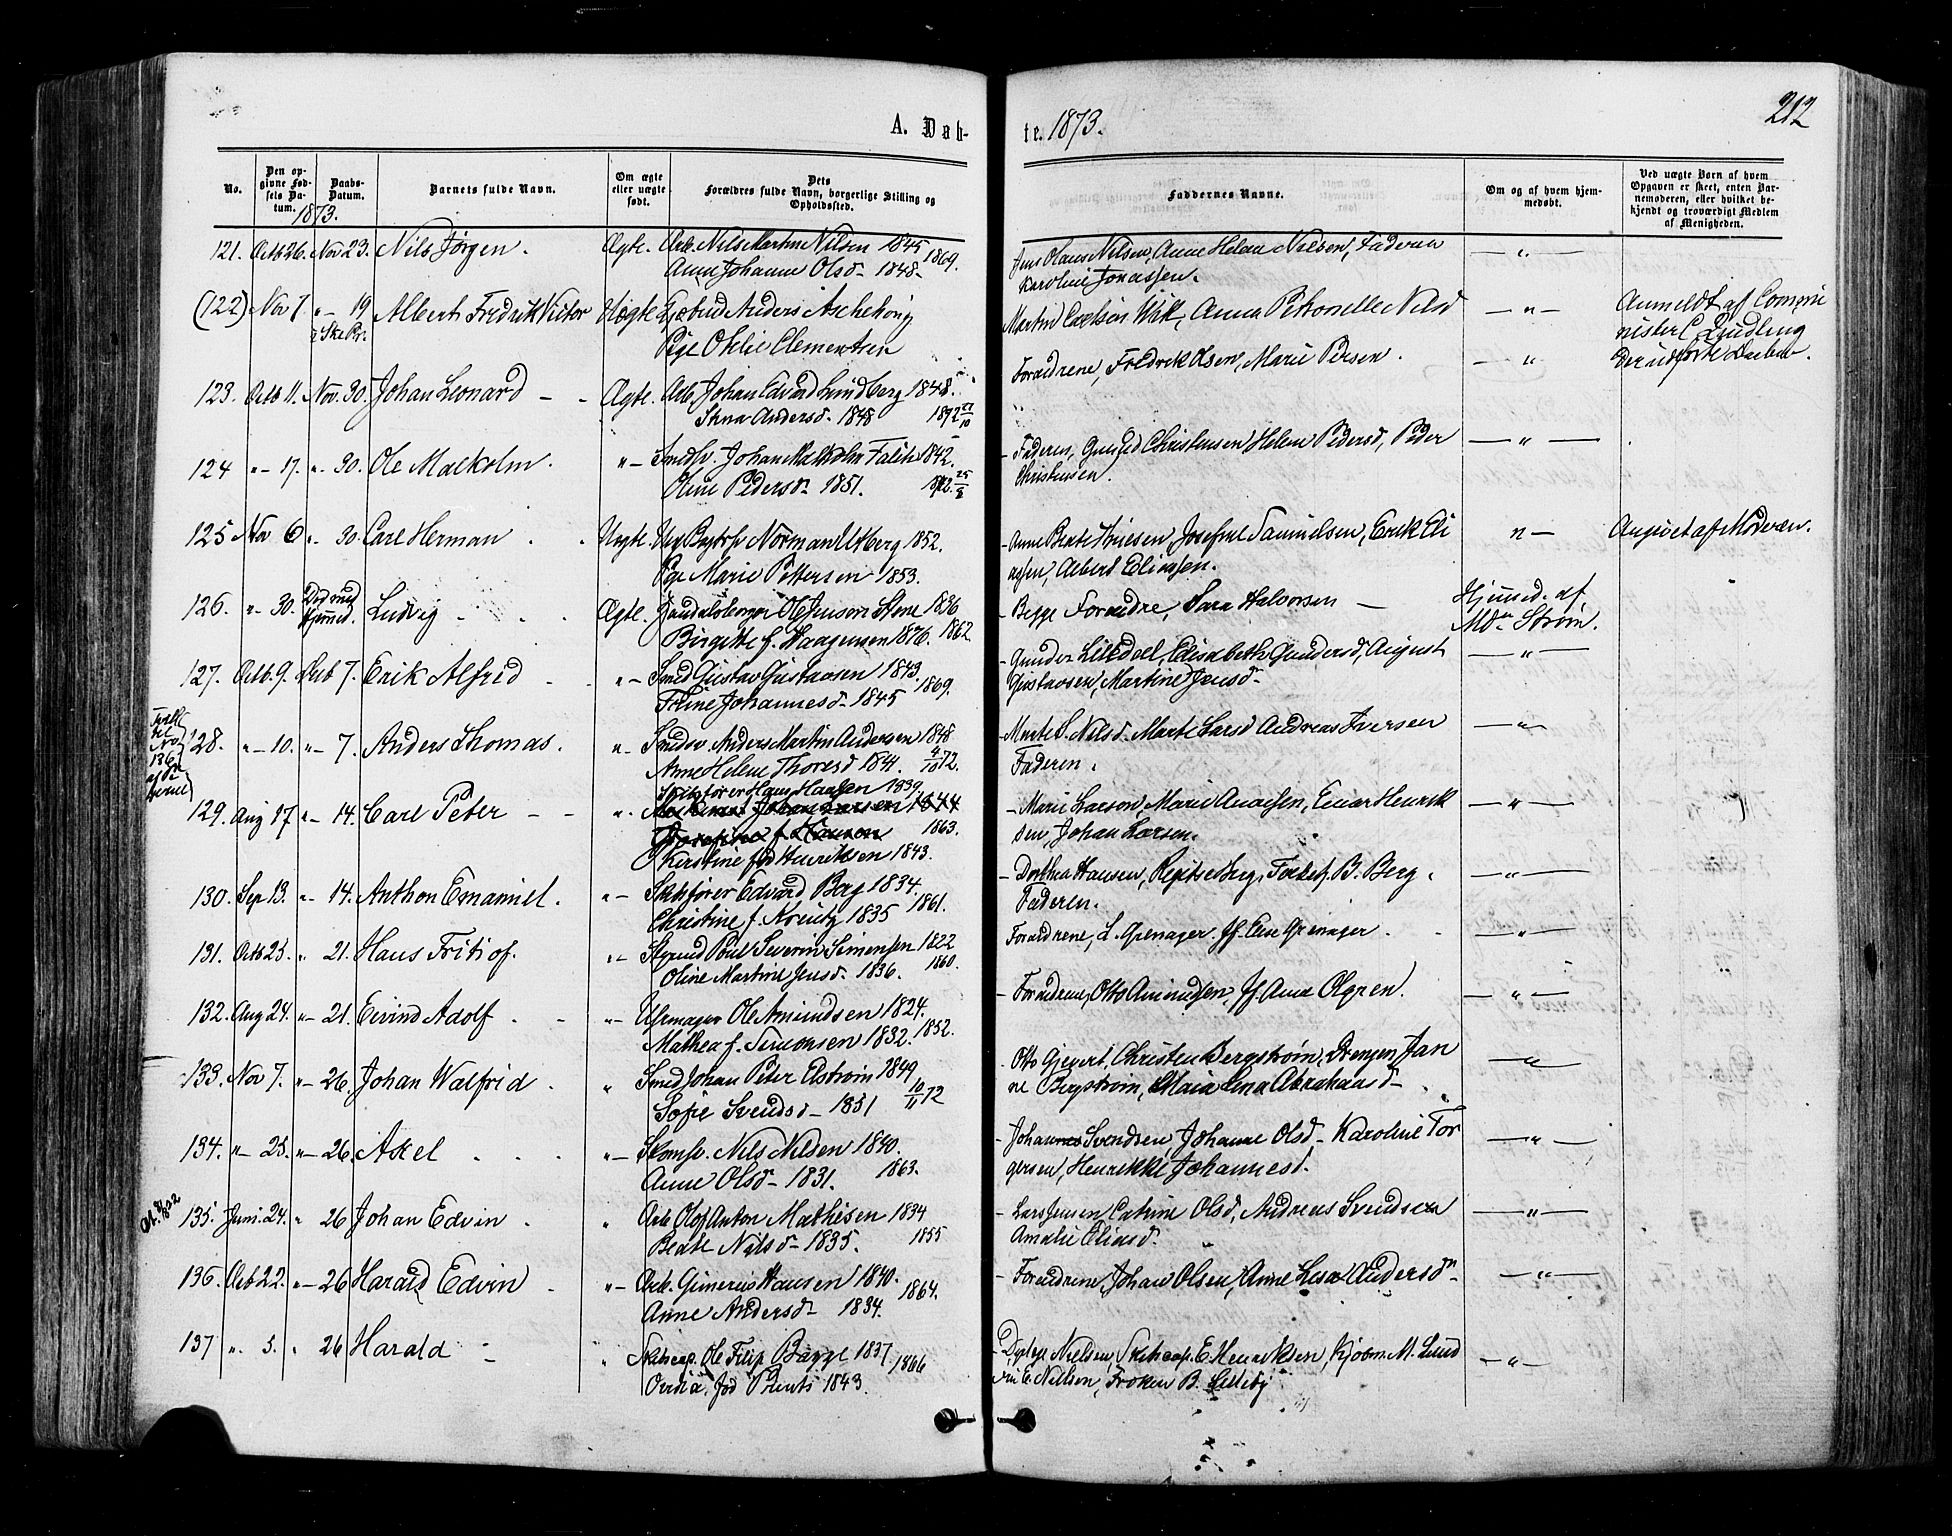 212
A. Døb-
te. 1873.
No.
Den op-
givne Fød-
sels Da-
tum.
1873.
Daabs-
Datum.
Barnets fulde Navn.
Om ægte
eller uægte
født.
Dets
Forældres fulde Navn, borgerlige Stilling og
Opholdssted.
Faddernes Navne.
Om og af hvem hjem-
medøbt.
Ved uægte Barn af hvem
Opgaven er skeet, enten Bar-
nemoderen, eller hvilket be-
kjendt og troværdigt Medlem
af Menigheden.
121. Octb 26. Nov 23. Nils Jørgen. Ægte. Arb. Nils Martin Nilsen 1845
Anne Johanne Olsd. 1848. 1869.
Jens Olaus Nilsen, Anne Helene Nielsen, Faderen
Karoline Jonassen.
(122) Nov 7. " 19 Albert Fredrik Victor Uægte Anders Aschehoug
Pige Othilie Clementsen
Martin Wiik, Anna Petronelle Nilsd
Anmeldt af
der udførte Daaben.
123. Octb 11. Nov. 30. Johan Leonard Ægte. Arb. Johan Edvard Lundberg 1848.
Andersd. 1848 1872 27/10
Forældrene, Fredrik Olsen, Marie Persen.
124 " 17. " 30. Ole Malkolm. " Smedsv. Johan Malkolm Falck 1842.
Oline Pedersd. 1851. 1872. 25/8
Faderen, Christensen Helene Pedersd, Peder
Christensen.
125 Nov 6 " 30. Carl Herman Uægte. Norman Utberg 1852.
Pge Marie Pettersen 1853.
Anne Beate Josefine Samuelsen, Erik Eli
assen, Albert Eliassen.
Angivet af Moderen.
126. " 30. Død med
Hjemmed. Ludvig Ægte. Ole Jensen Stene 1836
Birgitte f. Haagensen 1876. 1862
Begge Forældre, Sara Halvorsen
Hjemmed. af
Mdm Strøm.
127. Octb. 9. Decb 7. Erik Alfred " Smed Gustav Gustavsen 1843.
Johannesd. 1845 1869.
Gunder Lilledal, Elisabeth Gundersd, August
Gustavsen, Martine Jensd.
128. " 10. " 7. Anders Thomas. " Smedsv. Anders Martin Andersen 1848
Anne Helene Thoresd 1841. 4/10 72.
Marte S. Nilsd. Marte Larsd Andreas Iversen
Faderen.
129. Aug 17 " 14. Carl Peter " Skibsfører Hans Hansen 1839.
Johan Larsen 1844
Josefine f. Hansen 1863.
Kirstine fød Henriksen 1843.
Marie Larson, Marie Einar Henrik
sen, Johan Larsen.
130. Sep 13. " 14. Anthon Emanuel. " Skibsfører Edvard Berg 1834.
Christine f. 1835 1861.
Dorthea Hansen, Berg, B. Berg.
Faderen.
131. Octb 25. " 21. Hans Fritiof. " Styrmd Poul Severin Simensen 1822
Oline Martine Jensd. 1836. 1860.
Forældrene, L. Grenager, Jf. Elise Grenager
132. Aug 24. " 21. Eivind Adolf " Urmager Ole Amundsen 1824.
Mathea f. Simonsen 1832. 1852.
Forældrene, Otto Amundsen, Jf. Anna Olgren.
133. Nov 7. " 26. Johan Walfrid. " Smed Johan Peter Elstrøm 1849
Sofie Svendsd. 1851 10/11 72
Otto Gjevert, Christen Bergstrøm, Drengen, Jan
ne Bergstrøm, Maia Lena Abrahamsd.
134. " 25. " 26. Axel " Skomsv. Nils Nilsen 1840.
Anne Olsd. 1831. 1863.
Johannes Svendsen, Johanne Olsd. Karoline Tor
gersen, Henrikke Johannesd.
135. Juni. 24. " 26 Johan Edvin " Arb. Olof Anton Mathisen 1834
Beate Nilsd. 1835. 1855
Lars Jensen Catrine Olsd, Andreas Svendsen
Amalie Eliasd.
136. Octb 22. " 26 Harald Edvin " Arb. Gunerius Hansen 1840.
Anne Andersd. 1834. 1864.
Forældrene, Johan Olsen, Anne Lisa Andersdn
137 " 5. " 26 Harald " Skibscap. Ole Filip Bagge 1837
Ovidia. fød Prents 1843. 1866
Nielsen, Skibscap. E. Henriksen, Kjøbm. M. Lund
Nielsen, Frøken B. Lilleby